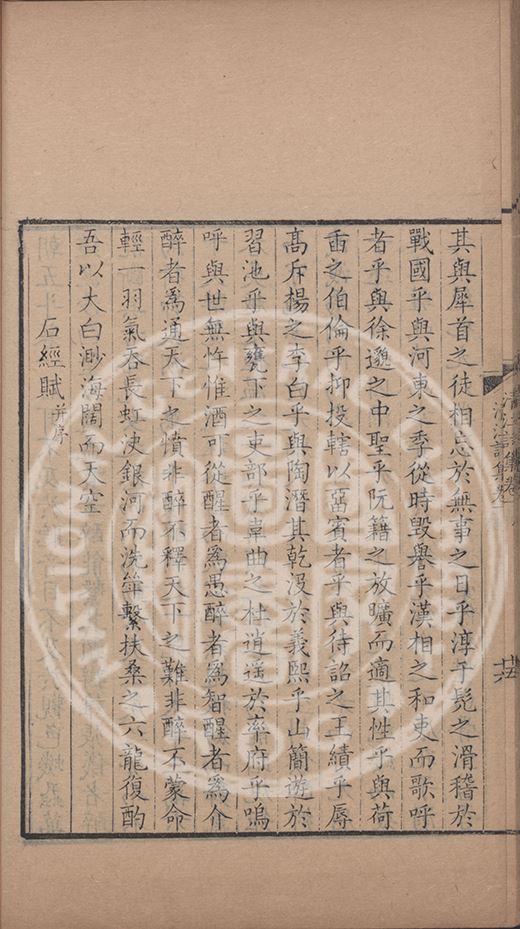 其與犀首之徒相忘於無事之日乎淳于髡之滑稽於
戰國乎與河東之季從時毀譽乎漢相之和吏而歌呼
者乎與徐邈之中聖乎阮籍之放曠而適其性乎與荷
臿之伯倫乎抑投轄以留賓者乎與待詔之王績乎辱
高斥楊之李白乎與陶潛其乾沒於義熙乎山簡遊於
習池乎與甕下之吏部乎韋曲之杜逍遥於率府乎嗚
呼與世無忤惟酒可從醒者為愚醉者為智醒者為介
醉者為通天下之憤非醉不釋天下之難非醉不蒙命
輕一羽氣吞長虹決銀河而洗 繫扶桑之六龍復酌
吾以大白渺海闊而天空
石經賦并序